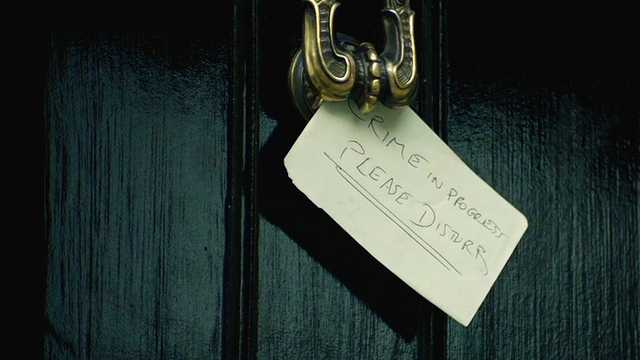 CRIME IN PROGRESS
PLEASE DISTURB